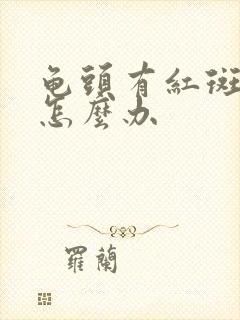 龟頭有紅斑
怎麼办
羅蘭